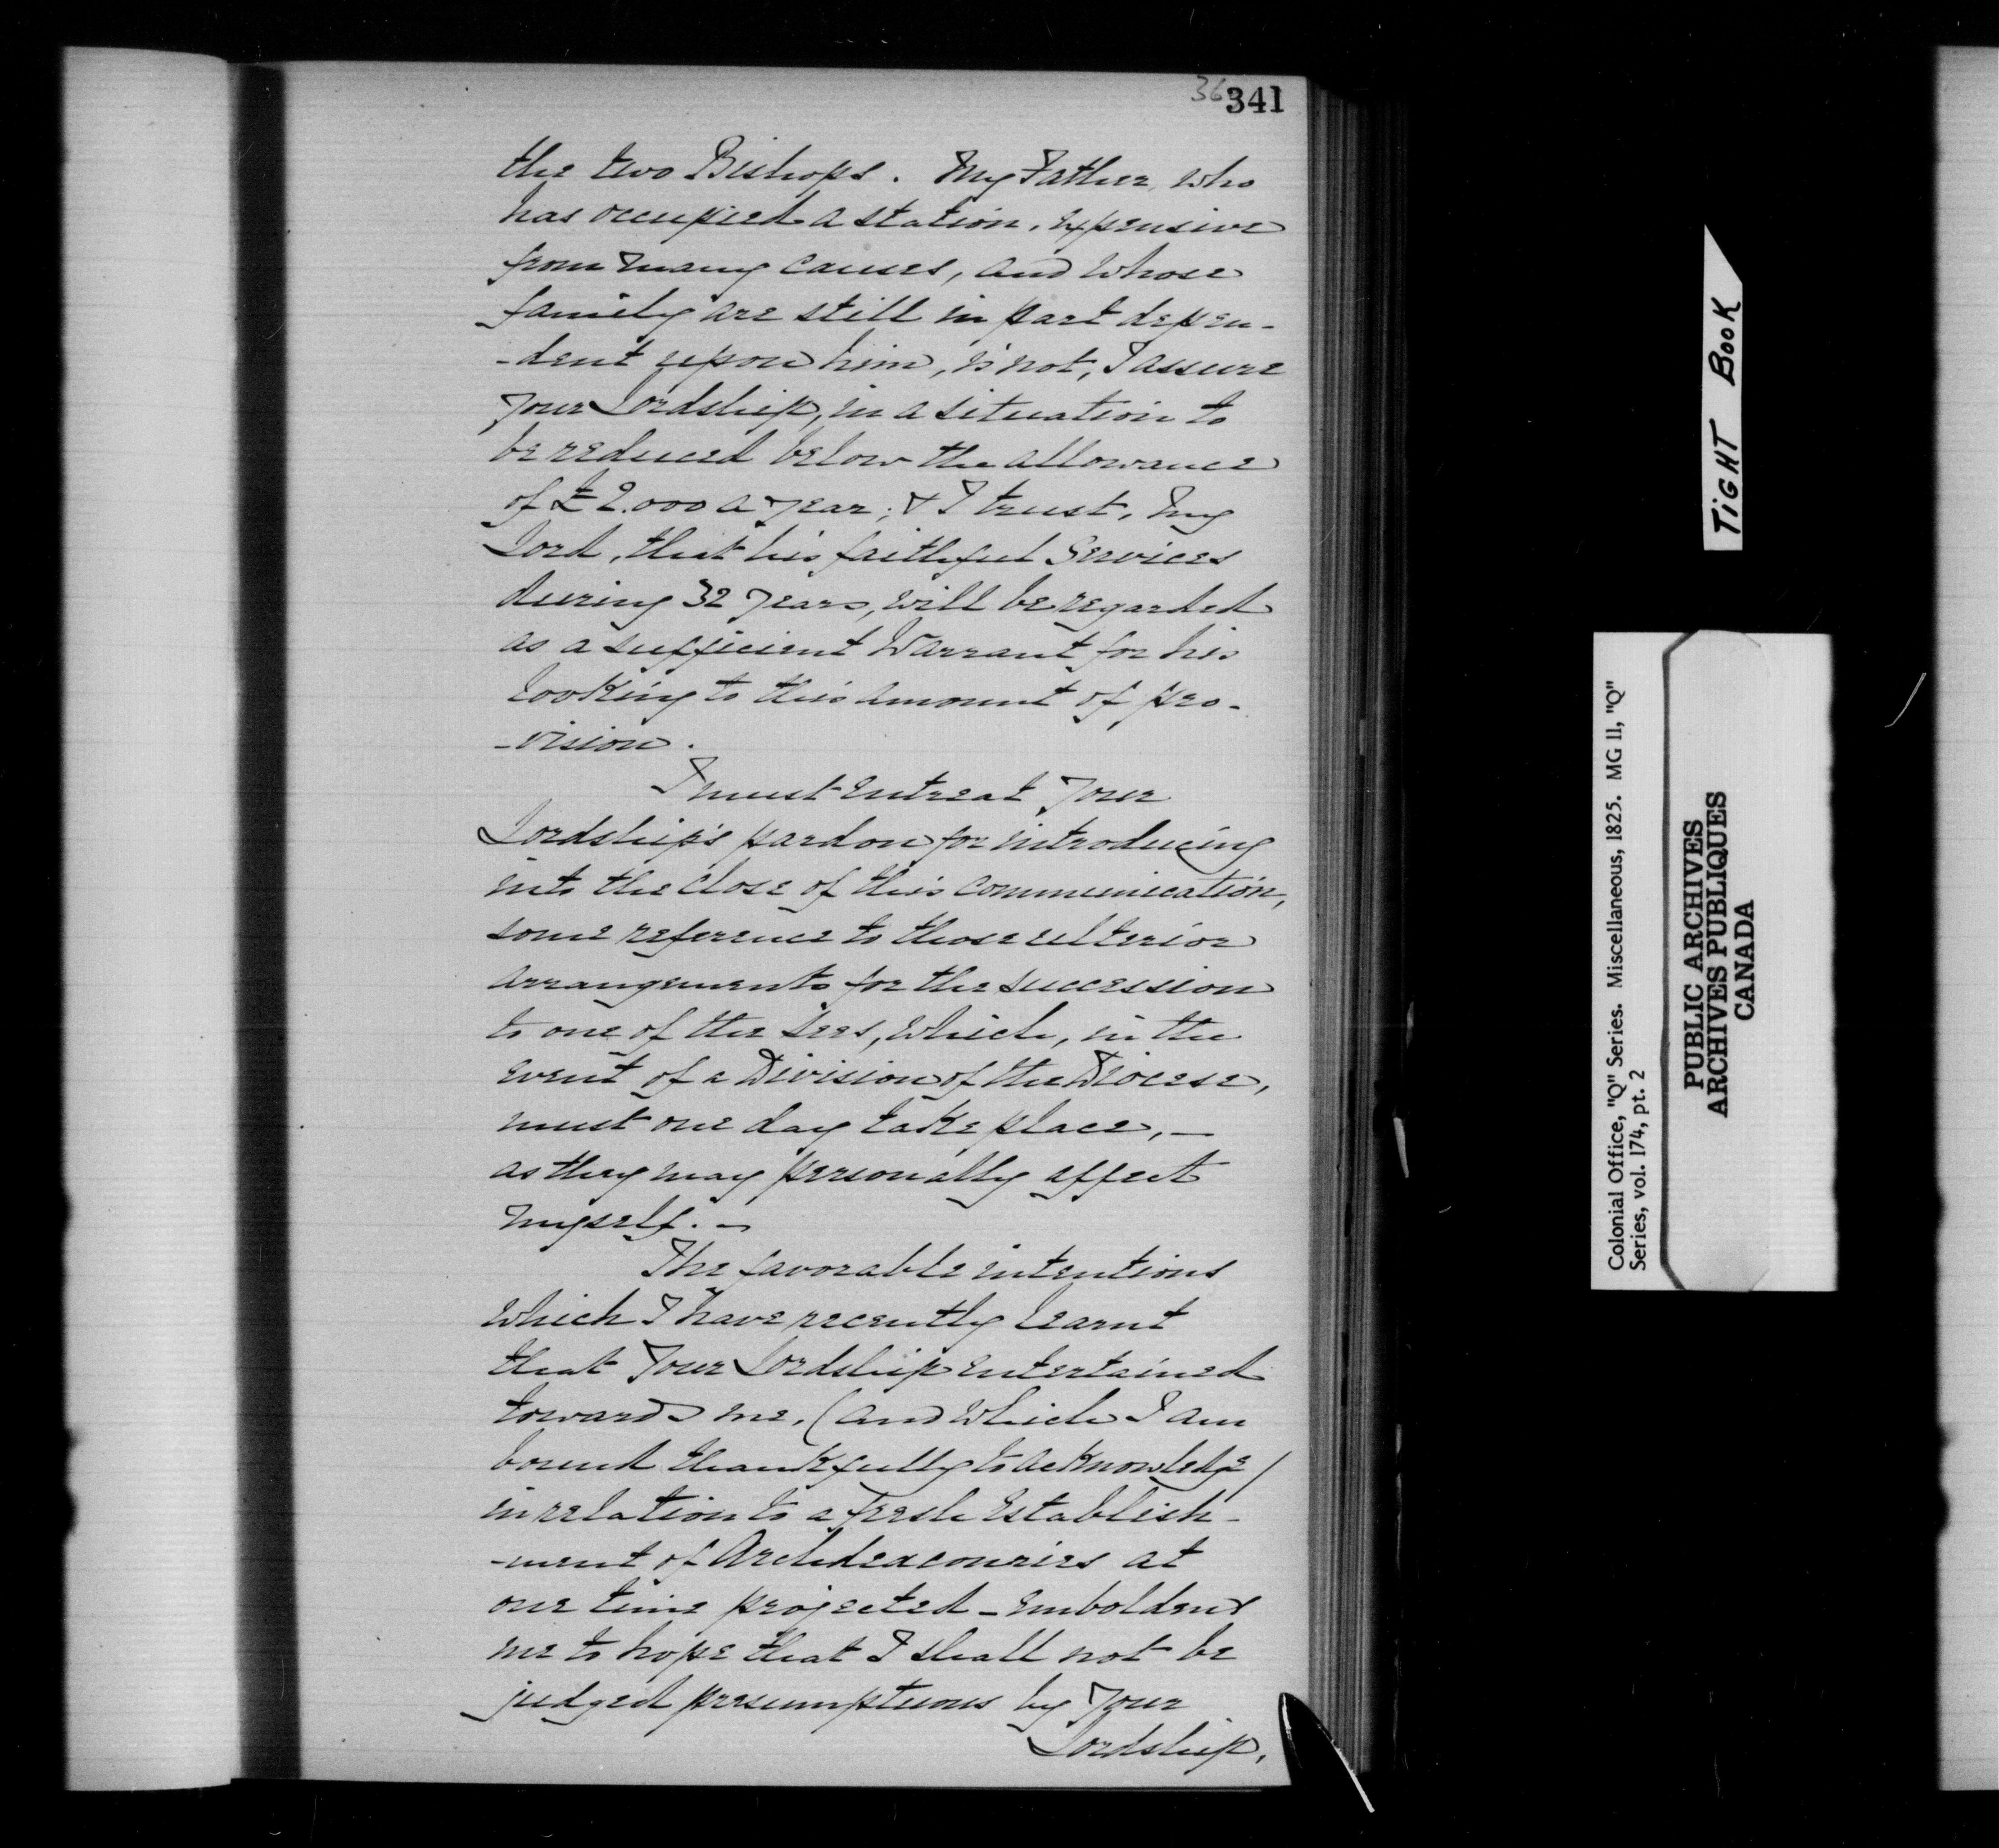 36 341
the two Bishops. My Father, who
has occupied a station, expensive
from many causes, and whose
family are still in part depen-
-dent upon him, is not, I assure
Your Lordship, in a situation to
be reduced below the allowance
of £2.000 a year; & I trust, My
Lord, that his faithful Services
during 32 years, will be regarded
as a sufficient Warrant for his
looking to this amount of pro-
-vision.
I must entreat Your
Lordship's pardon for introducing
into the close of this communication,
some reference to those ulterior
arrangements for the succession
to one of the Sees, which, in the
event of a Division of the Diocese,
must one day take place, —
as they may personally affect
myself. —
The favorable intentions
which I have recently learnt
that Your Lordship entertained
towards me, (and which I am
bound thankfully to acknowledge)
in relation to a fresh Establish-
-ment of Archdeaconries at
one time projected - emboldens
me to hope that I shall not be
judged presumptuous by Your
Lordship,
TIGHT BOOK
Colonial Office, "Q" Series. Miscellaneous, 1825. MG 11, "Q"
Series, vol. 174, pt. 2
PUBLIC ARCHIVES
ARCHIVES PUBLIQUES
CANADA